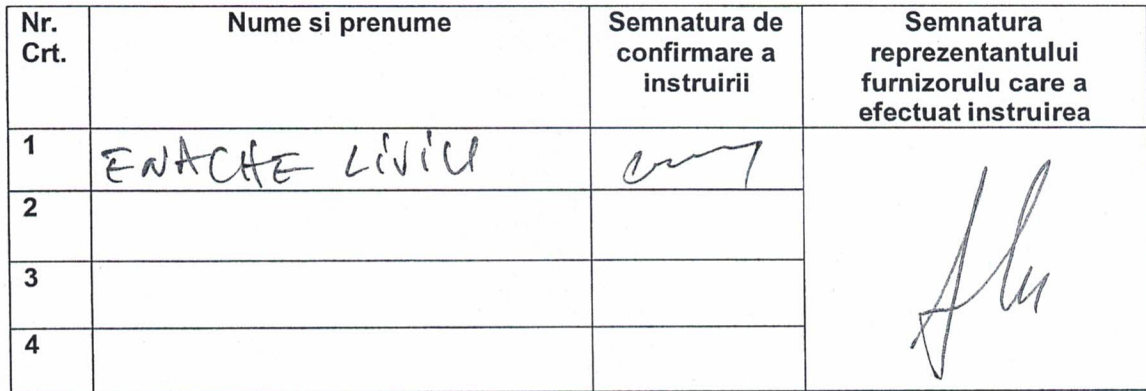 Nr. Crt.
Nume si prenume
Semnatura de confirmare a instruirii
Semnatura reprezentantului furnizorulu care a efectuat instruirea
1
ENACHE LIVIU
2
3
4